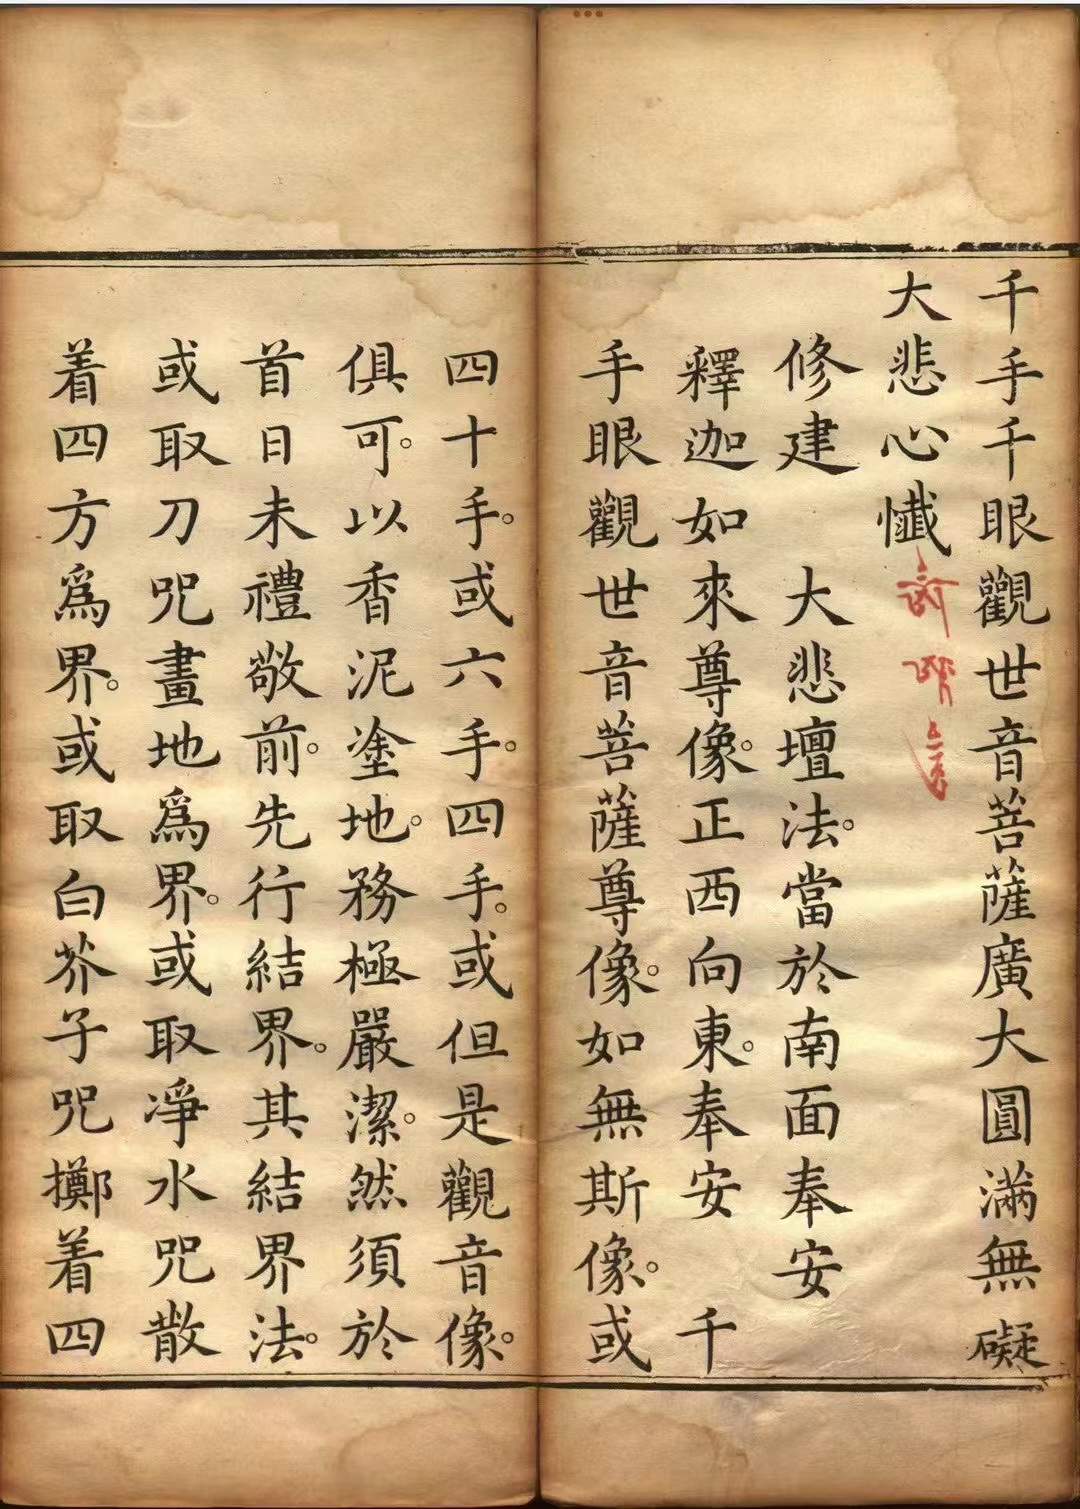 千手千眼觀世音菩薩廣大圓滿無礙
大悲心懺
修建　大悲壇法。當於南面奉安
釋迦如來尊像。正西向東。奉安　千
手眼觀世音菩薩尊像。如無斯像。或
四十手。或六手。四手。或但是觀音像。
俱可。以香泥塗地。務極嚴潔。然須於
首日未禮敬前。先行結界。其結界法。
或取刀咒畫地爲界。或取凈水咒散
着四方爲界。或取白芥子咒擲着四